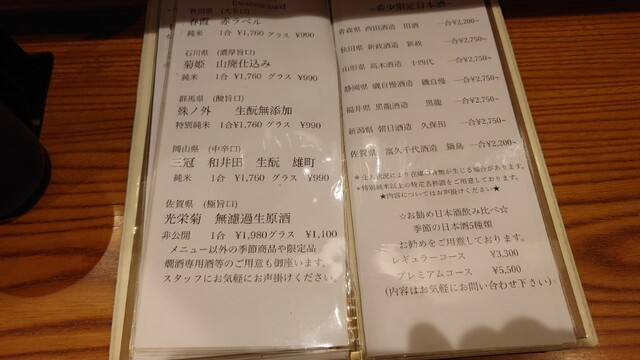 秋田県
春霞 赤ラベル
純米 1合 ¥1,760 グラス ¥990
石川県 (濃厚旨口)
菊姫 山廃仕込み
純米 1合 ¥1,760 グラス ¥990
群馬県 (酸旨口)
殊ノ外 生酛無添加
特別純米 1合¥1,760 グラス ¥990
岡山県 (中辛口)
三冠 和井田 生酛 雄町
純米 1合 ¥1,760 グラス ¥990
佐賀県 (極旨口)
光栄菊 無濾過生原酒
非公開 1合 ¥1,980グラス ¥1,100
メニュー以外の季節商品や限定品
燗酒専用酒等のご用意も御座います。
スタッフにお気軽にお声掛けください
~希少限定日本酒~
青森県 西田酒造 田酒 一合¥2,200~
秋田県 新政酒造 新政 一合¥2,750~
山形県 高木酒造 十四代 一合¥2,750~
静岡県 磯自慢酒造 磯自慢 一合¥2,750~
福井県 黒龍酒造 黒龍 一合¥2,750~
新潟県 朝日酒造 久保田 一合¥2,750~
佐賀県 富久千代酒造 鍋島 一合¥2,200~
*仕入状況により在庫に有無が生じる場合があります。
*特別純米以上の特定名称酒をご用意しております。
★内容についてはお声掛けください★
☆お勧め日本酒飲み比べ☆
季節の日本酒5種類
お勧めをご用意しております。
レギュラーコース ¥3,300
プレミアムコース ¥5,500
(内容はお気軽にお問い合わせ下さい)